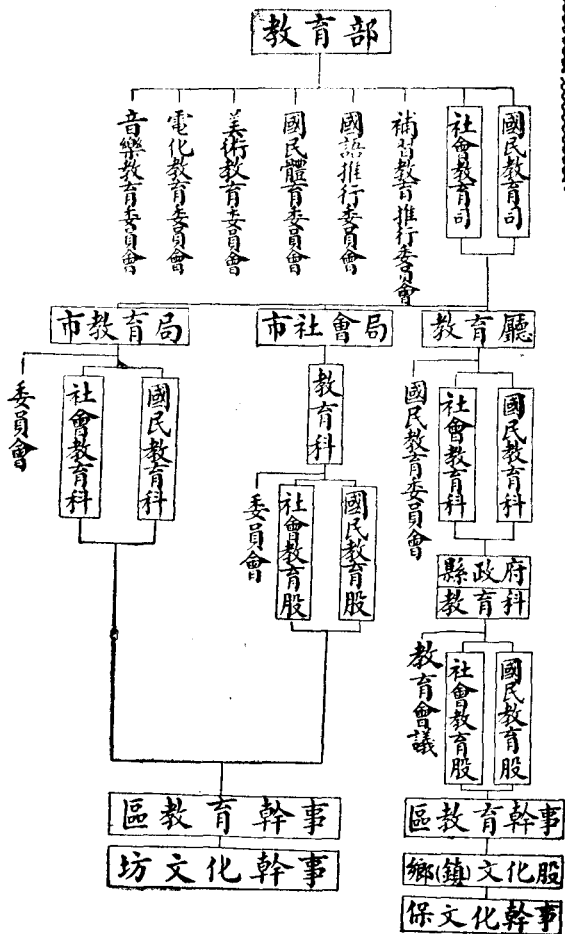 教育部
國民教育司
社會教育司
補習教育推行委員會
國語推行委員會
國民體育委員會
美術教育委員會
電化教育委員會
音樂教育委員會
教育廳
市社會局
市教育局
國民教育科
社會教育科
國民教育委員會
縣政府
教育科
國民教育股
社會教育股
教育會議
區教育幹事
鄉(鎮)文化股
保文化幹事
教育科
國民教育股
社會教育股
委員會
國民教育科
社會教育科
委員會
區教育幹事
坊文化幹事